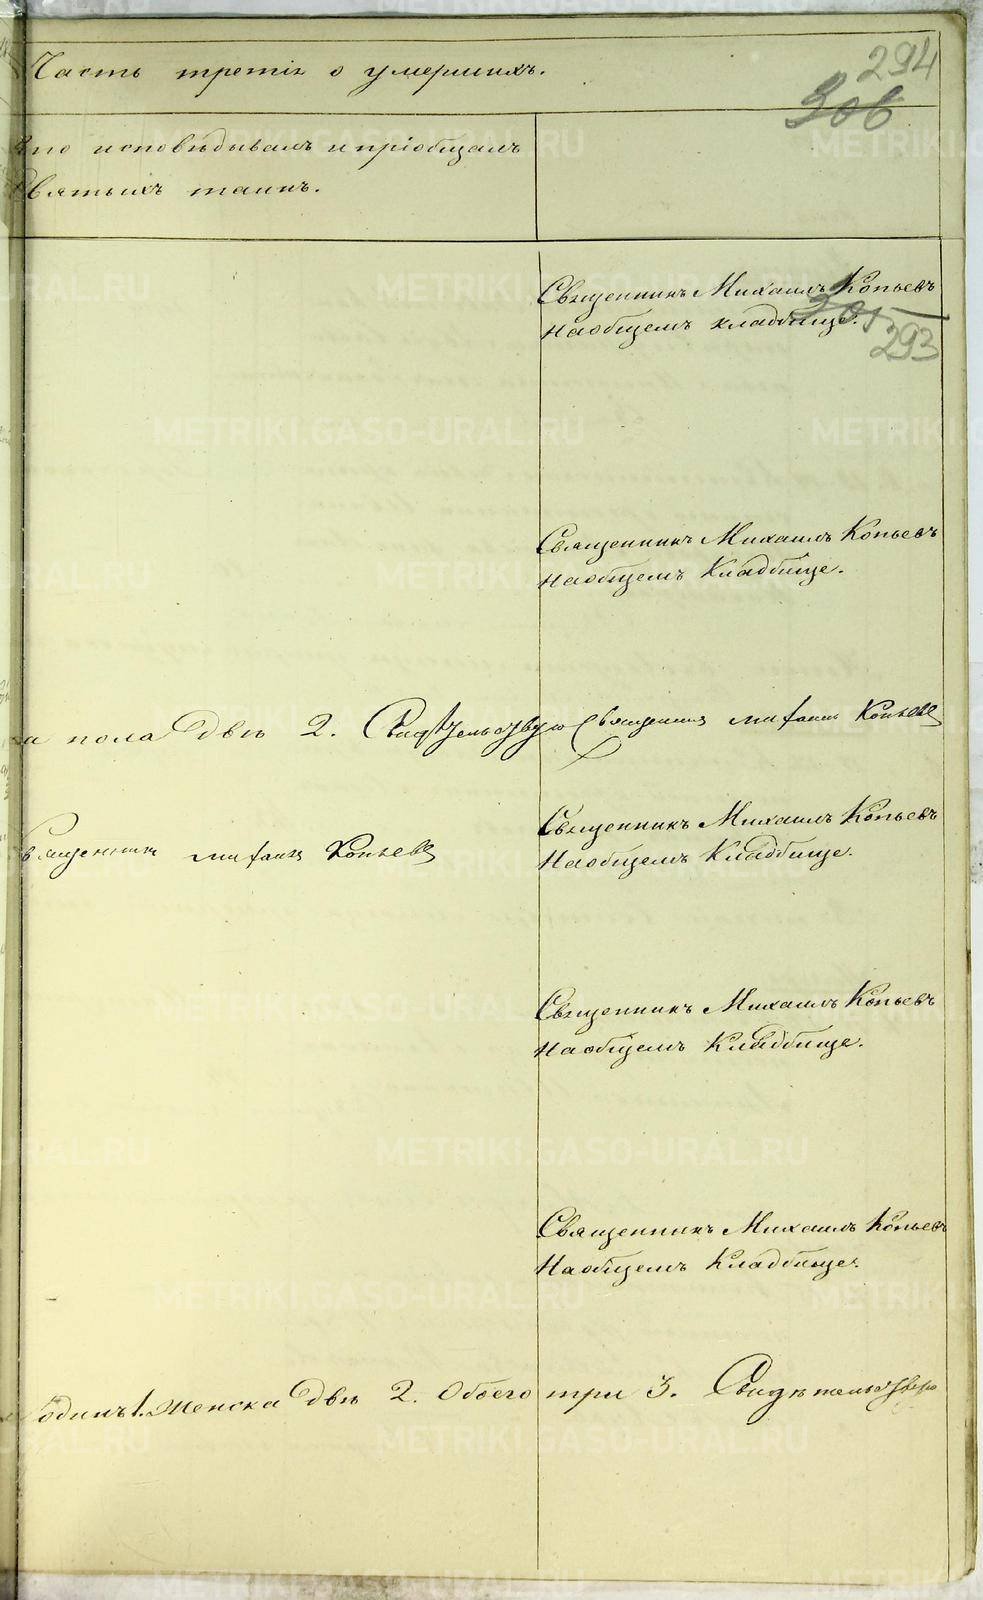 Часть третія о умершихъ.
294
306
Кто исповѣдывалъ и пріобщалъ
Святыхъ таинъ.
Священникъ Михаилъ Копьевъ
на общемъ кладбище.
305
293
Священникъ Михаилъ Копьевъ
на общемъ Кладбище.
пола двѣ 2. Свидѣтельствую Священникъ Михаилъ Копьевъ
Священникъ Михаилъ Копьевъ
Священникъ Михаилъ Копьевъ
На общемъ Кладбище.
Священникъ Михаилъ Копьевъ
На общемъ Кладбище.
Священникъ Михаилъ Копьевъ
На общемъ Кладбище.
одинъ 1. Женска двѣ 2. Обоего три 3. Свидѣтельствую
METRIKI.GASO-URAL.RU